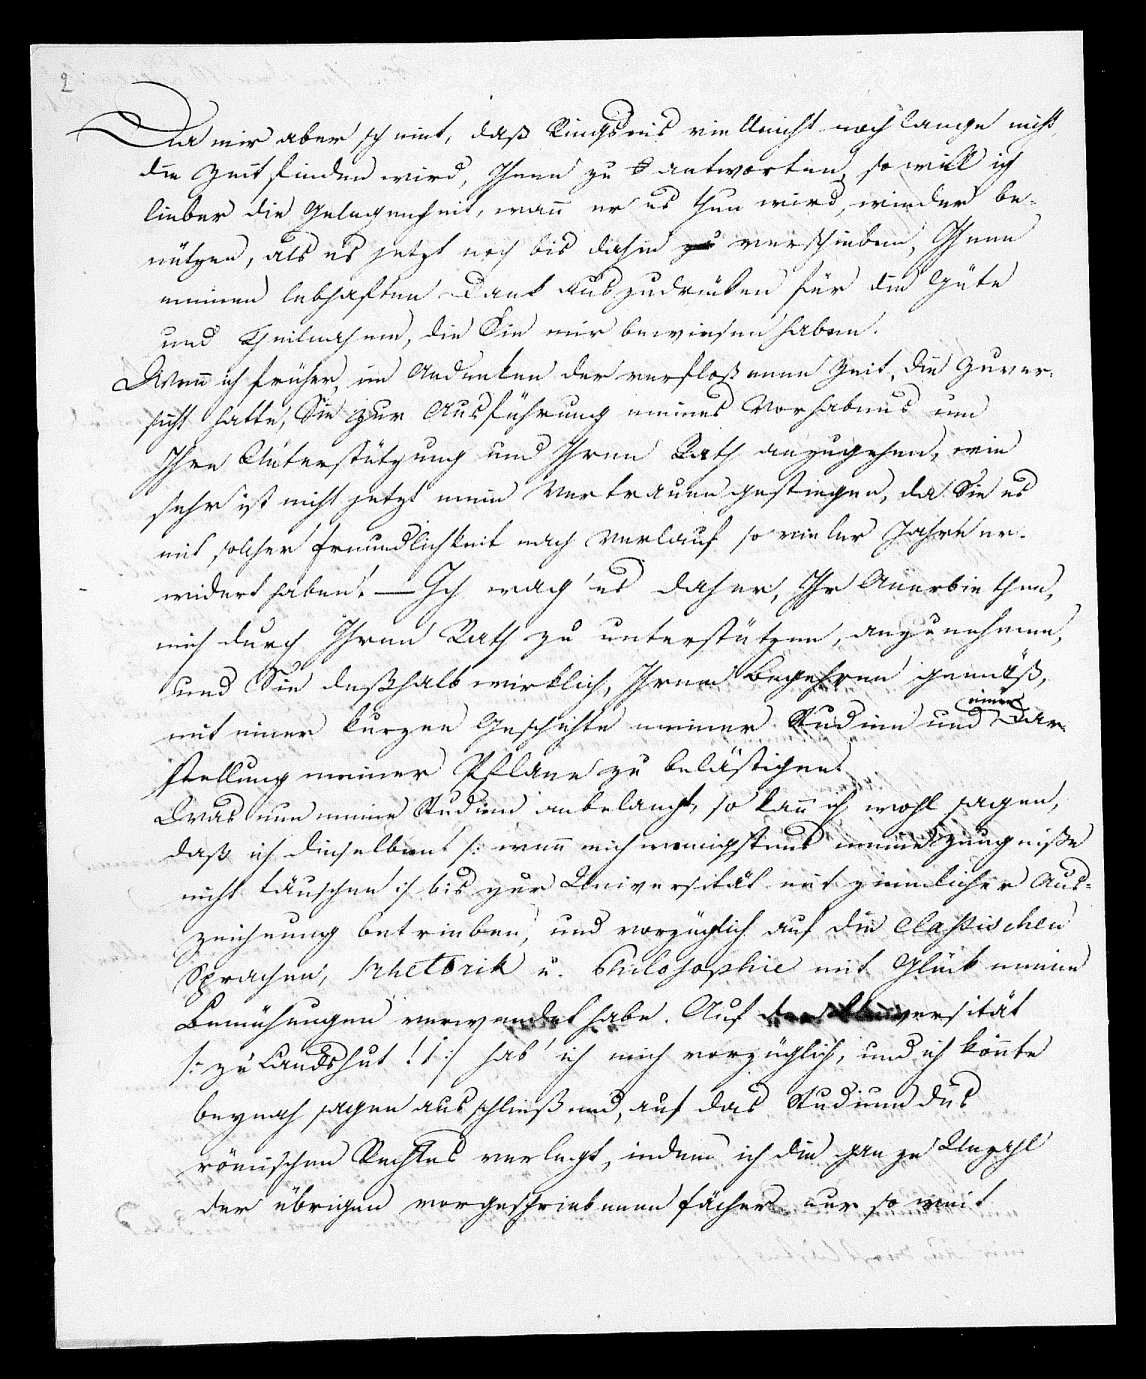 2
Da mir aber scheint, daß Ringseis vielleicht noch lange nicht
die Zeit finden wird, Ihnen zu antworten, so will ich
lieber die Gelegenheit, wañ er es thun wird, wieder be-
nützen, als es jetzt noch bis dahin verschieben, Ihnen
meinen lebhaften Dank auszudrücken für die Güte
und Theilnahme, die Sie mir bewiesen haben.
Weñ ich früher, im Andenken der verfloßenen Zeit, die Zuver-
sicht hatte, Sie zur Ausführung meines Vorhabens um
Ihre Unterstützung und Ihren Rath anzugehen, wie
sehr ist nicht jetzt mein Vertrauen gestiegen, da Sie es
mit solcher Freundlichkeit nach Verlauf so vieler Jahre er-
widert haben! — Ich wag' es daher, Ihr Anerbiethen,
mich durch Ihren Rath zu unterstützen, anzunehmen,
und Sie deßhalb wirklich, Ihrem Begehren gemäß,
mit einer kurzen Geschichte meiner Studien und einer Dar-
stellung meiner Pläne zu belästigen.
Was nun meine Studien anbelangt, so kañ ich wohl sagen,
daß ich dieselben /: weñ mich wenigstens meine Zeugniße
nicht täuschen :/ bis zur Universität mit ziemlicher Aus-
zeichnung betrieben, und vorzüglich auf die classischen
Sprachen, Rhetorik u. Philosophie mit Glück meine
Bemühungen verwendet habe. Auf der Universität
/: zu Landshut !! :/ hab' ich mich vorzüglich, und ich köñte
beynah sagen ausschließend, auf das Studium des
römischen Rechtes verlegt, indem ich die ganze Unzahl
der übrigen vorgeschriebenen Fächer nur so weit